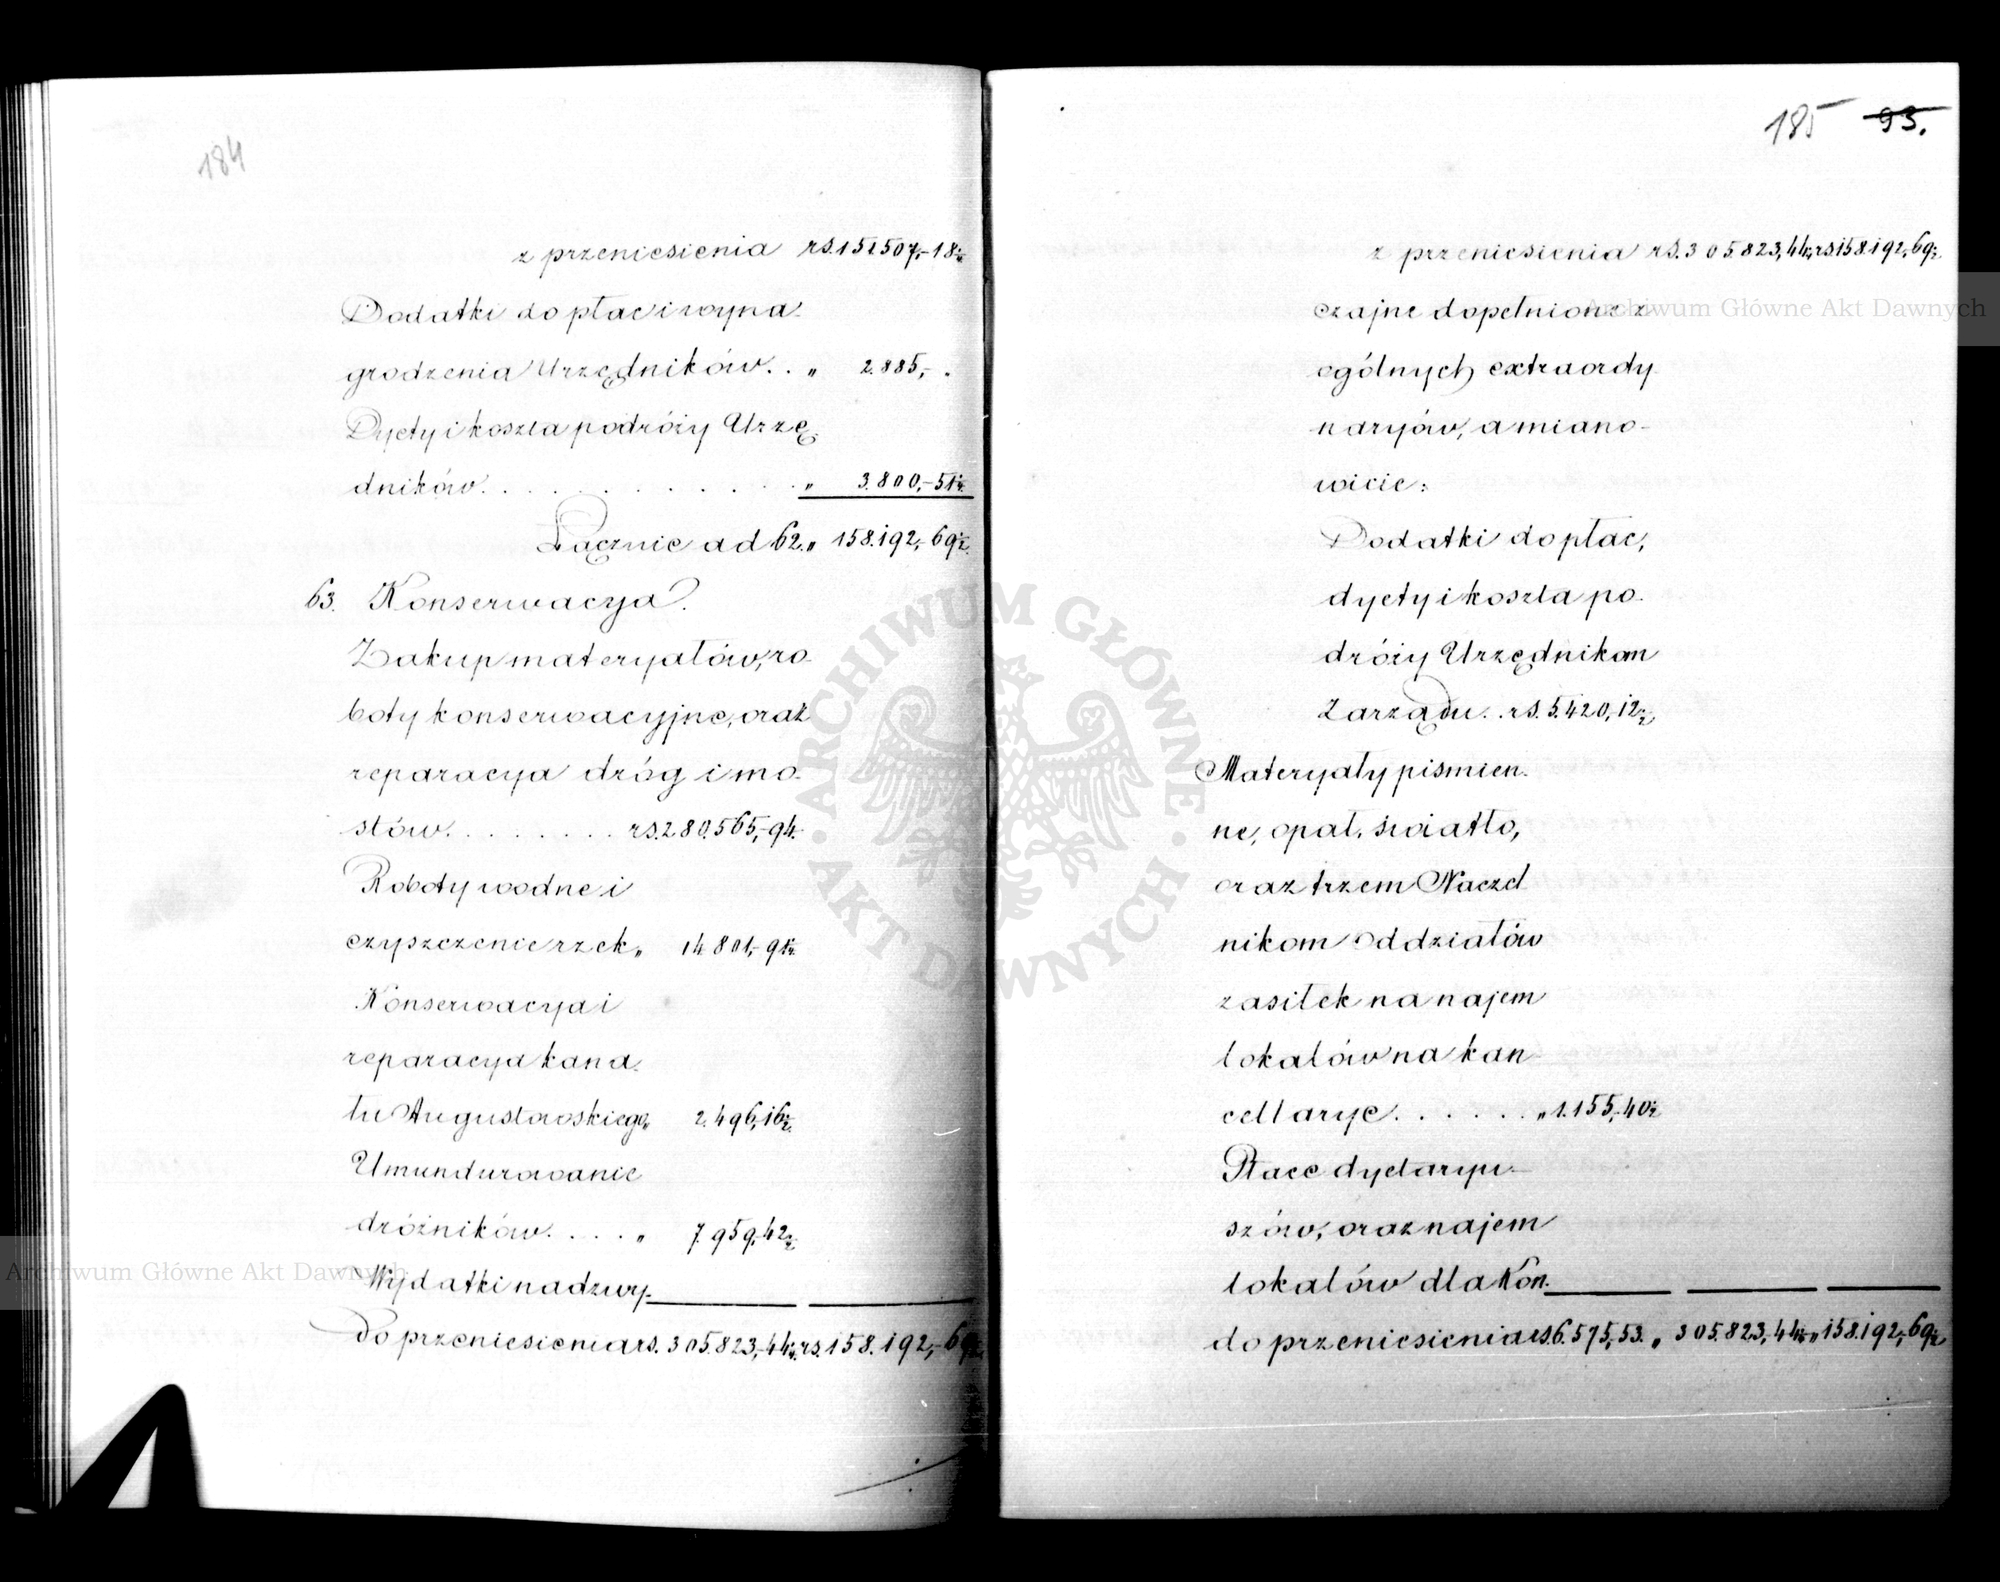 184
z przeniesienia rs. 151507,-18½
Dodatki do płac i wyna-
grodzenia Urzędników. . „ 2.885,- .
Dyety i koszta podróży Urzę-
dników. . . . . . . . . . . „ 3.800,-51½
Łącznie ad 62. „ 158.192,-69½
63. Konserwacya.
Zakup materyałów, ro-
boty konserwacyjne, oraz
reparacya dróg i mo-
stów. . . . . . . . rs. 280.565,-94.
Roboty wodne i
czyszczenie rzek „ 14.801,-91½
Konserwacya i
reparacya kana-
łu Augustowskiego „ 2.496,-16½
Umundurowanie
dróżników. . . . . „ 7.959,-42½
Wydatki nadzwy-
do przeniesienia rs. 305.823,-44½ rs. 158.192,-69½
185 93.
z przeniesienia rs. 305.823,44½ rs. 158.192,-69½
czajne dopełnione z
ogólnych extraordy-
naryów, a miano-
wicie:
Dodatki do płac,
dyety i koszta po-
dróży Urzędnikom
Zarządu. . rs. 5.420,-12½
Materyały piśmien-
ne, opał, światło,
oraz trzem Naczel
nikom Oddziałów
zasiłek na najem
lokalów na kan-
cellarye. . . . . . „ 1.155,-40½
Płace dyetaryu-
szów, oraz najem
lokalów dla Kon-
do przeniesienia rs. 6.575,-53. „ 305.823,-44½ „ 158.192,-69½
Archiwum Główne Akt Dawnych
Archiwum Główne Akt Dawnych
ARCHIWUM GŁÓWNE · AKT DAWNYCH ·